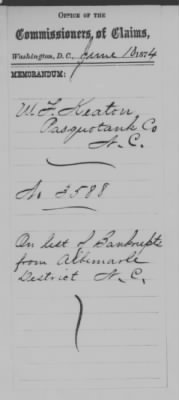 OFFICE OF THE
Commissioners of Claims,
Washington, D.C., June 18 1874
MEMORANDUM:
W. F. Keaton
Pasquotank Co
N. C.
No. 3588
On list of Bankrupts
from Albimarle
District N. C.